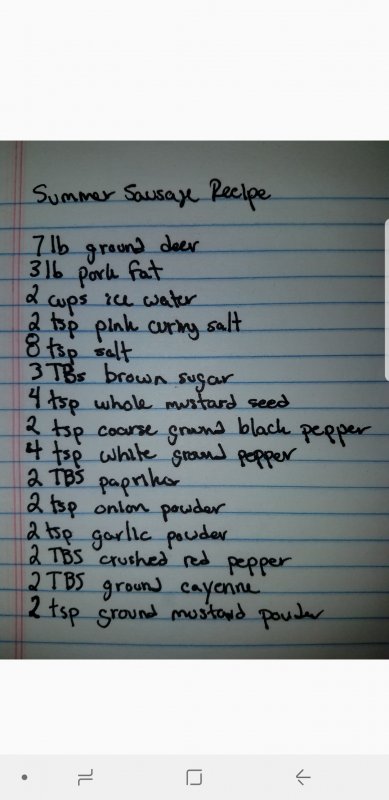 Summer Sausage Recipe
7 lb ground deer
3 lb pork fat
2 cups ice water
2 tsp pink curing salt
8 tsp salt
3 TBs brown sugar
4 tsp whole mustard seed
2 tsp coarse ground black pepper
4 tsp white ground pepper
2 TBS paprika
2 tsp onion powder
2 tsp garlic powder
2 TBS crushed red pepper
2 TBS ground cayenne
2 tsp ground mustard powder